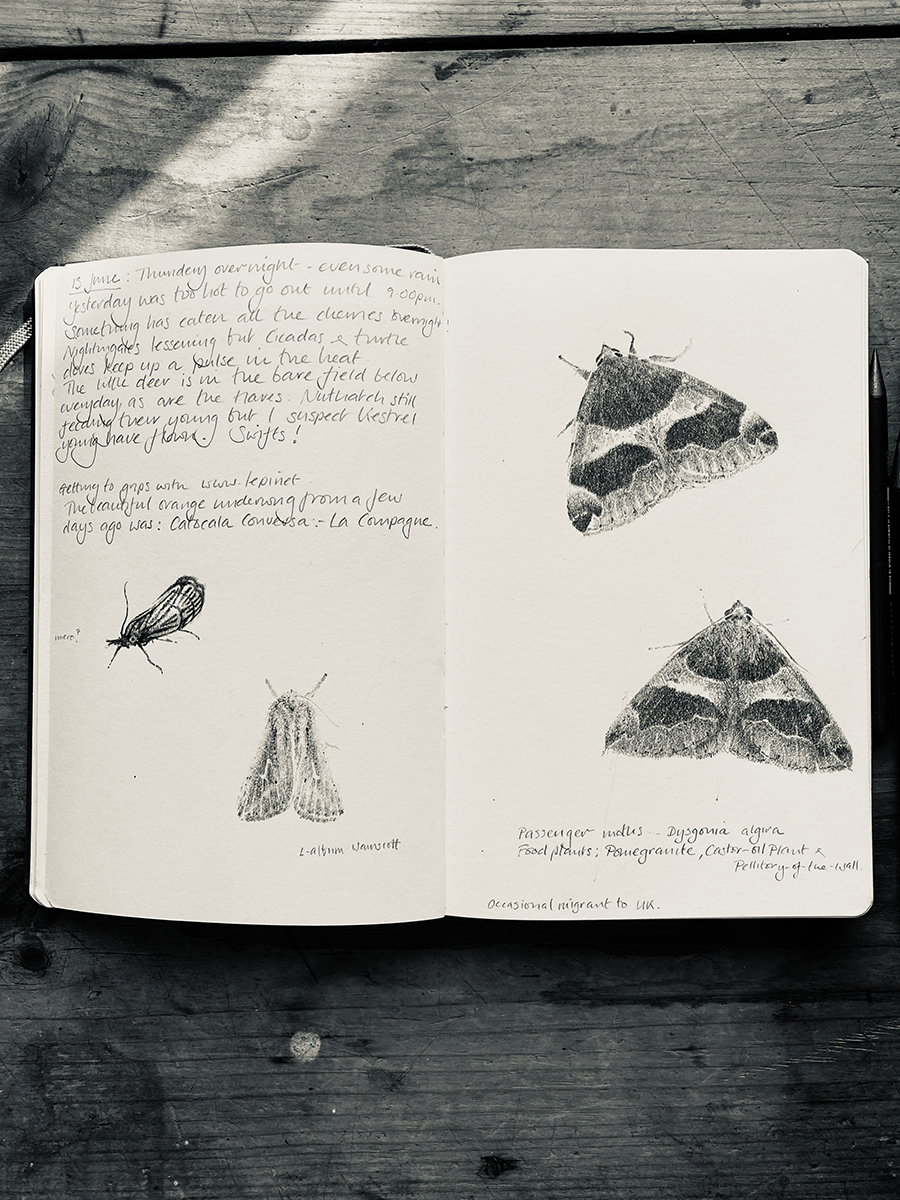 15 June: Thundery overnight - even some rain
yesterday was too hot to go out until 9.00pm.
Something has eaten all the cherries overnight!
Nightingales lessening but Cicadas & turtle
doves keep up a pulse in the heat.
The little deer is in the bare field below
everyday, as are the Hares. Nuthatch still
feeding their young but I suspect Kestrel
young have flown. Swifts!
Getting to grips with www.lepinet.
The beautiful orange underwing from a few
days ago was: Catocala Conversa:- La Compagne.
micro?
L-album Wainscott
Passenger moths - Dysgonia algira
Food plants: Pomegranite, Castor-oil Plant &
Pellitory-of-the-wall.
Occasional migrant to UK.